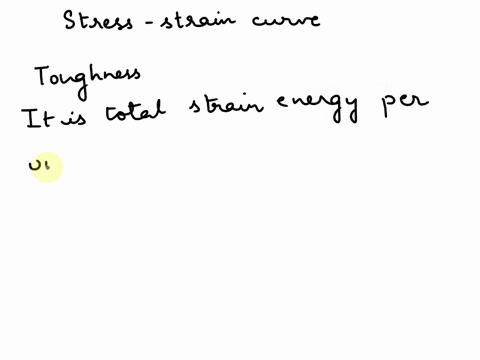 Stress - strain curve
Toughness
It is total strain energy per